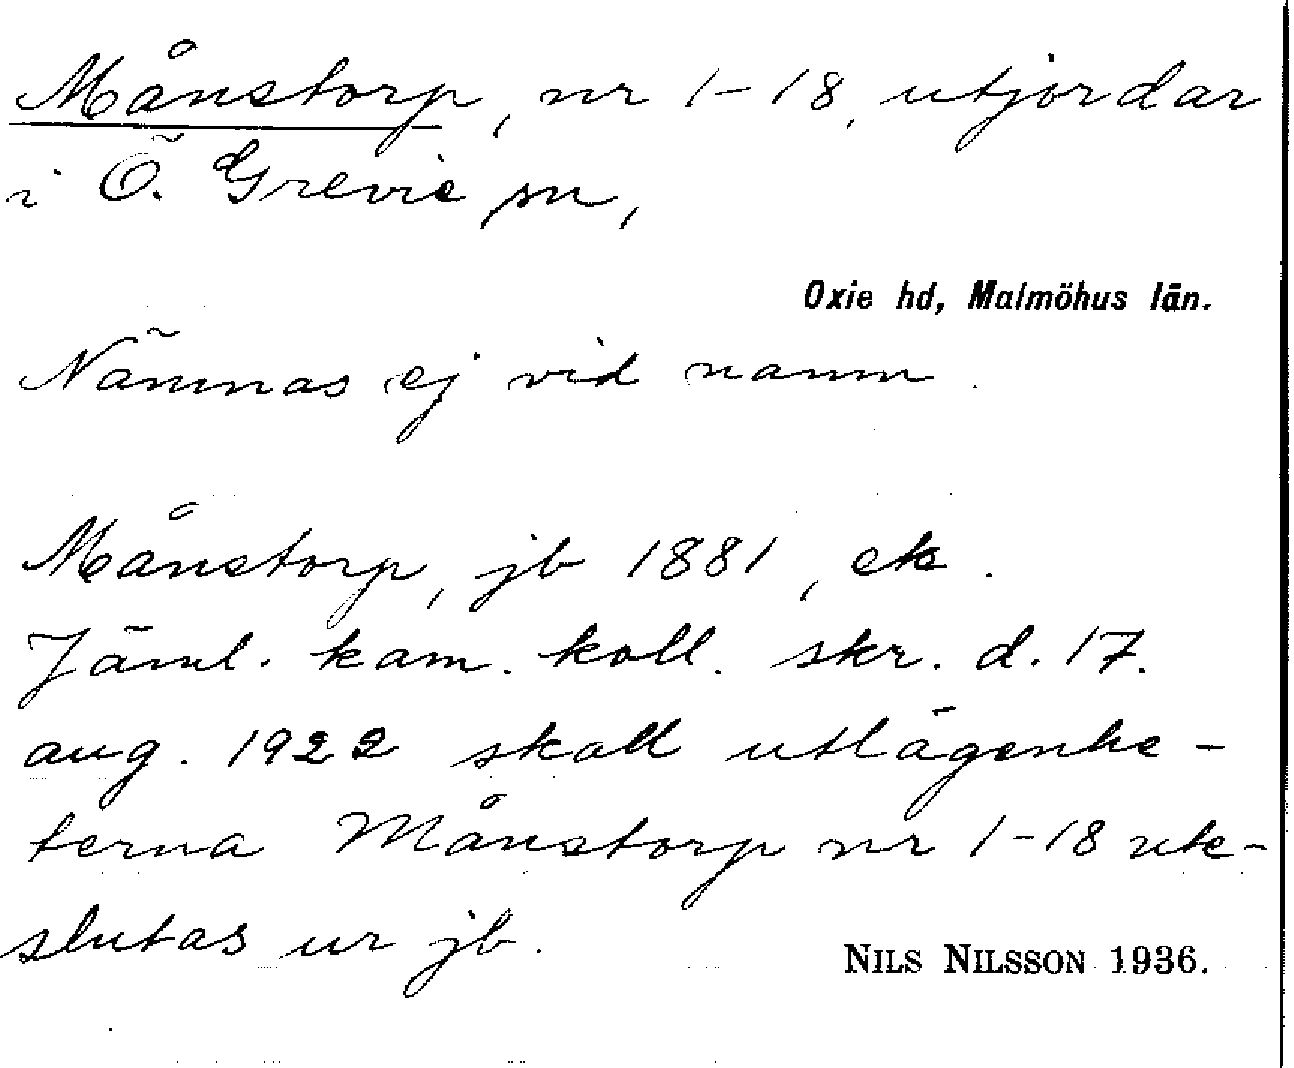 Månstorp, nr 1-18, utjordar
i Ö. Grevie sn,
Oxie hd, Malmöhus län.
Nämnas ej vid namn.
Månstorp, jb 1881, ek.
Jäml. kam. koll. skr. d. 17.
aug. 1922 skall utlägenhe-
terna Månstorp nr 1-18 ute-
slutas ur jb.
NILS NILSSON 1936.